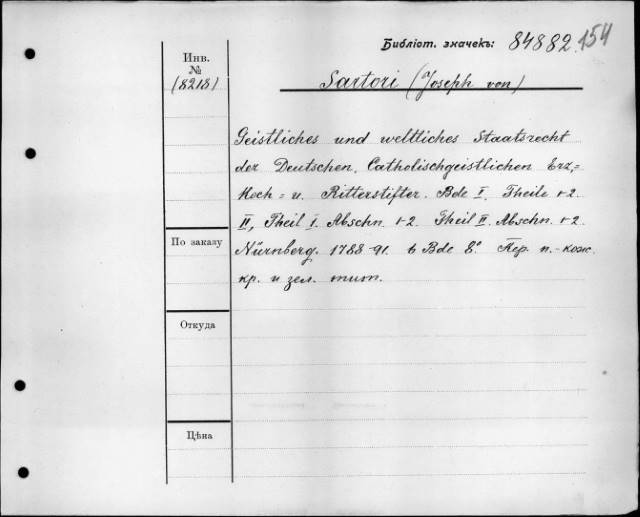 Библіот. значекъ: 84882 154
Инв.
№
(8218)
Sartori (Joseph von)
Geistliches und weltliches Staatsrecht
der Deutschen, Catholischgeistlichen Erz,=
Hoch= u. Ritterstifter. Bde I, Theile 1-2.
II, Theil I. Abschn. 1-2. Theil II. Abschn. 1-2.
Nürnberg. 1788-91. 6 Bde 8°. Пер. п.-кож.
кр. и зел. тит.
По заказу
Откуда
Цѣна